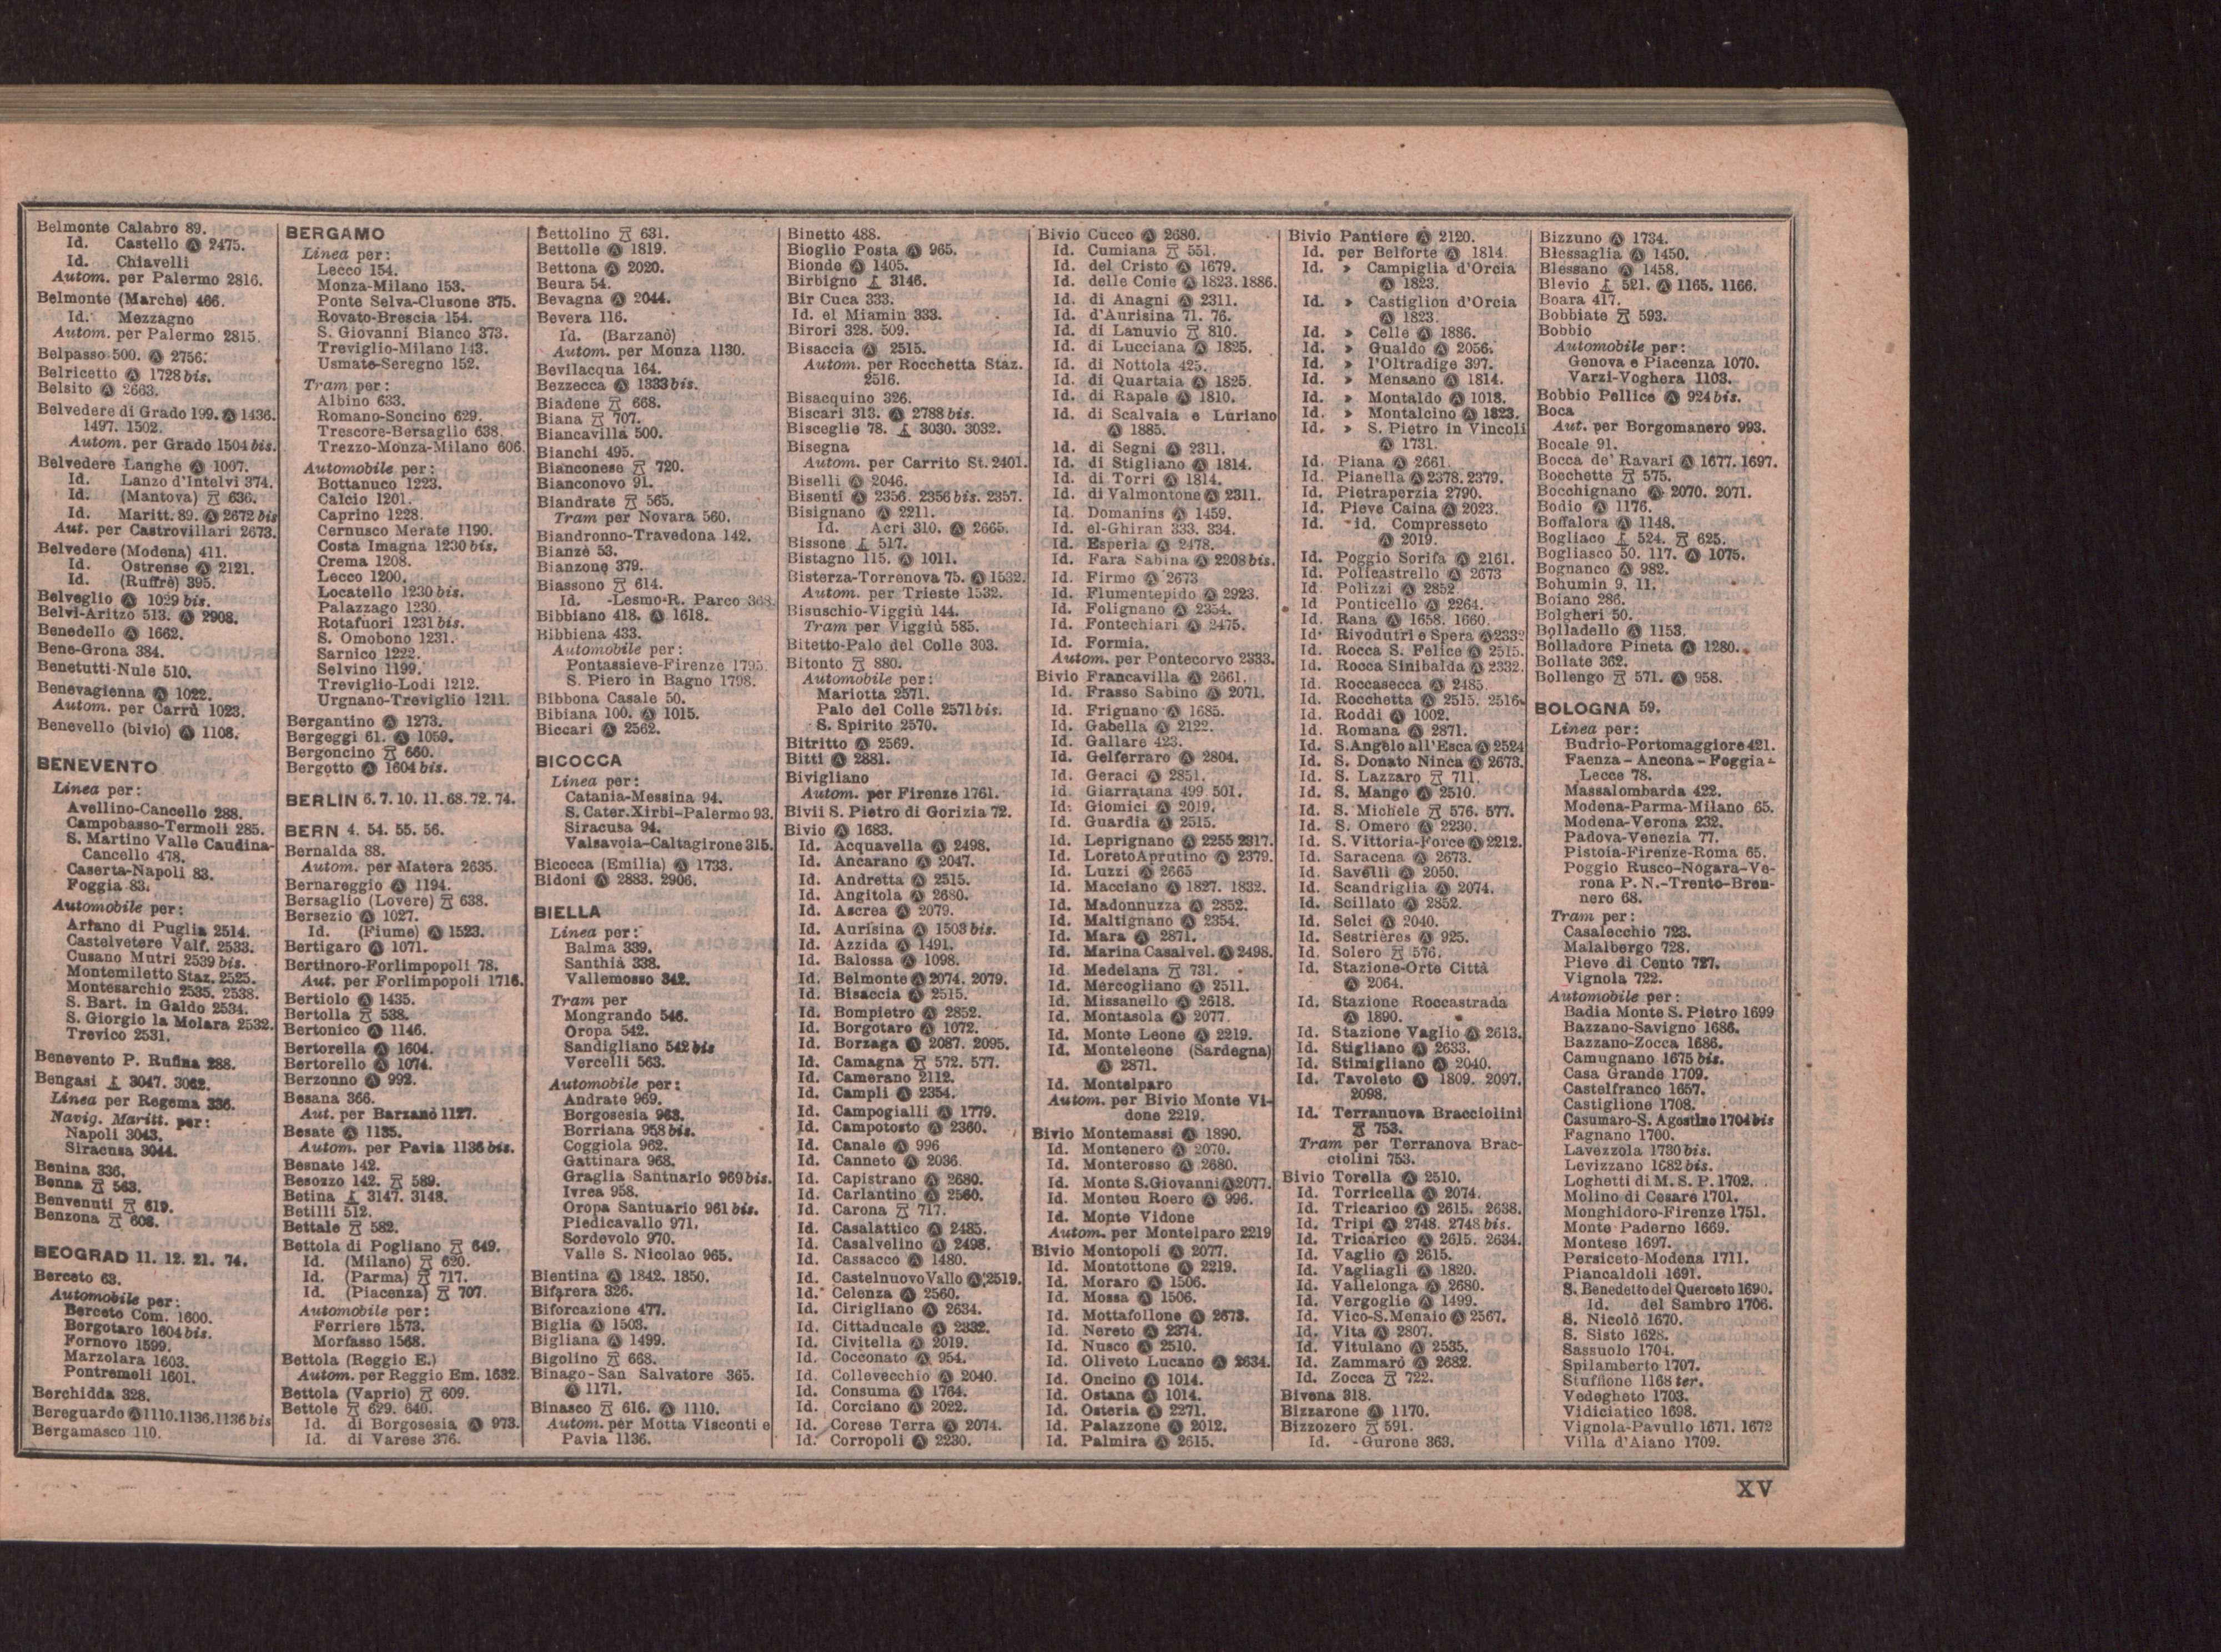 Belmonte Calabro 89.
Id. Castello Ⓐ 2475.
Id. Chiavelli
Autom. per Palermo 2816.
Belmonte (Marche) 466.
Id. Mezzagno
Autom. per Palermo 2815.
Belpasso 500. Ⓐ 2756.
Belricetto Ⓐ 1728 bis.
Belsito Ⓐ 2663.
Belvedere di Grado 199. Ⓐ 1436.
1497. 1502.
Autom. per Grado 1504 bis.
Belvedere Langhe Ⓐ 1007.
Id. Lanzo d'Intelvi 374.
Id. (Mantova) 636.
Id. Maritt. 89. Ⓐ 2672 bis
Aut. per Castrovillari 2673.
Belvedere (Modena) 411.
Id. Ostrense Ⓐ 2121.
Id. (Ruffrè) 395.
Belveglio Ⓐ 1029 bis.
Belvi-Aritzo 513. Ⓐ 2908.
Benedello Ⓐ 1662.
Bene-Grona 384.
Benetutti-Nule 510.
Benevagienna Ⓐ 1022.
Autom. per Carrù 1023.
Benevello (bivio) Ⓐ 1108.
BENEVENTO
Linea per:
Avellino-Cancello 288.
Campobasso-Termoli 285.
S. Martino Valle Caudina-
Cancello 478.
Caserta-Napoli 83.
Foggia 83.
Automobile per:
Arfano di Puglia 2514.
Castelvetere Valf. 2533.
Cusano Mutri 2539 bis.
Montemiletto Staz. 2525.
Montesarchio 2535. 2538.
S. Bart. in Galdo 2534.
S. Giorgio la Molara 2532.
Trevico 2531.
Benevento P. Rufina 288.
Bengasi 3047. 3062.
Linea per Regema 336.
Navig. Maritt. per:
Napoli 3043.
Siracusa 3044.
Benina 336.
Benna 563.
Benvenuti 619.
Benzona 608.
BEOGRAD 11. 12. 21. 74.
Berceto 63.
Automobile per:
Berceto Com. 1600.
Borgotaro 1604 bis.
Fornovo 1599.
Marzolara 1603.
Pontremoli 1601.
Berchidda 328.
Bereguardo Ⓐ 1110.1136.1136 bis
Bergamasco 110.
BERGAMO
Linea per:
Lecco 154.
Monza-Milano 153.
Ponte Selva-Clusone 375.
Rovato-Brescia 154.
S. Giovanni Bianco 373.
Treviglio-Milano 143.
Usmate-Seregno 152.
Tram per:
Albino 633.
Romano-Soncino 629.
Trescore-Bersaglio 638.
Trezzo-Monza-Milano 606.
Automobile per:
Bottanuco 1223.
Calcio 1201.
Caprino 1228.
Cernusco Merate 1190.
Costa Imagna 1230 bis.
Crema 1208.
Lecco 1200.
Locatello 1230 bis.
Palazzago 1230.
Rotafuori 1231 bis.
S. Omobono 1231.
Sarnico 1222.
Selvino 1199.
Treviglio-Lodi 1212.
Urgnano-Treviglio 1211.
Bergantino Ⓐ 1273.
Bergeggi 61. Ⓐ 1059.
Bergoncino 660.
Bergotto Ⓐ 1604 bis.
BERLIN 6. 7. 10. 11. 68. 72. 74.
BERN 4. 54. 55. 56.
Bernalda 88.
Autom. per Matera 2635.
Bernareggio Ⓐ 1194.
Bersaglio (Lovere) 638.
Bersezio Ⓐ 1027.
Id. (Fiume) Ⓐ 1523.
Bertigaro Ⓐ 1071.
Bertinoro-Forlimpopoli 78.
Aut. per Forlimpopoli 1716.
Bertiolo Ⓐ 1435.
Bertolla 538.
Bertonico Ⓐ 1146.
Bertorella Ⓐ 1604.
Bertorello Ⓐ 1074.
Berzonno Ⓐ 992.
Besana 366.
Aut. per Barzanò 1127.
Besate Ⓐ 1135.
Autom. per Pavia 1136 bis.
Besnate 142.
Besozzo 142. 589.
Betina 3147. 3148.
Betilli 512.
Bettale 582.
Bettola di Pogliano 649.
Id. (Milano) 620.
Id. (Parma) 717.
Id. (Piacenza) 707.
Automobile per:
Ferriere 1573.
Morfasso 1568.
Bettola (Reggio E.)
Autom. per Reggio Em. 1632.
Bettola (Vaprio) 609.
Bettole 629. 640.
Id. di Borgosesia Ⓐ 973.
Id. di Varese 376.
Bettolino 631.
Bettolle Ⓐ 1819.
Bettona Ⓐ 2020.
Beura 54.
Bevagna Ⓐ 2044.
Bevera 116.
Id. (Barzanò)
Autom. per Monza 1130.
Bevilacqua 164.
Bezzecca Ⓐ 1333 bis.
Biadene 668.
Biana 707.
Biancavilla 500.
Bianchi 495.
Bianconese 720.
Bianconovo 91.
Biandrate 565.
Tram per Novara 560.
Biandronno-Travedona 142.
Bianzè 53.
Bianzone 379.
Biassono 614.
Id. -Lesmo-R. Parco 368.
Bibbiano 418. Ⓐ 1618.
Bibbiena 433.
Automobile per:
Pontassieve-Firenze 1795.
S. Piero in Bagno 1798.
Bibbona Casale 50.
Bibiana 100. Ⓐ 1015.
Biccari Ⓐ 2562.
BICOCCA
Linea per:
Catania-Messina 94.
S. Cater. Xirbi-Palermo 93.
Siracusa 94.
Valsavoia-Caltagirone 315.
Bicocca (Emilia) Ⓐ 1733.
Bidoni Ⓐ 2883. 2906.
BIELLA
Linea per:
Balma 339.
Santhià 338.
Vallemosso 342.
Tram per
Mongrando 546.
Oropa 542.
Sandigliano 542 bis
Vercelli 563.
Automobile per:
Andrate 969.
Borgosesia 963.
Borriana 958 bis.
Coggiola 962.
Gattinara 968.
Graglia Santuario 969 bis.
Ivrea 958.
Oropa Santuario 961 bis.
Piedicavallo 971.
Sordevolo 970.
Valle S. Nicolao 965.
Bientina Ⓐ 1842. 1850.
Bifarera 326.
Biforcazione 477.
Biglia Ⓐ 1503.
Bigliana Ⓐ 1499.
Bigolino 668.
Binago-San Salvatore 365.
Ⓐ 1171.
Binasco 616. Ⓐ 1110.
Autom. per Motta Visconti e
Pavia 1136.
Binetto 488.
Bioglio Posta Ⓐ 965.
Bionde Ⓐ 1405.
Birbigno 3146.
Bir Cuca 333.
Id. el Miamin 333.
Birori 328. 509.
Bisaccia Ⓐ 2515.
Autom. per Rocchetta Staz.
2516.
Bisacquino 326.
Biscari 313. Ⓐ 2788 bis.
Bisceglie 78. 3030. 3032.
Bisegna
Autom. per Carrito St. 2401.
Biselli Ⓐ 2046.
Bisenti Ⓐ 2356. 2356 bis. 2357.
Bisignano Ⓐ 2211.
Id. Acri 310. Ⓐ 2665.
Bissone 517.
Bistagno 115. Ⓐ 1011.
Bisterza-Torrenova 75. Ⓐ 1532.
Autom. per Trieste 1532.
Bisuschio-Viggiù 144.
Tram per Viggiù 585.
Bitetto-Palo del Colle 303.
Bitonto 880.
Automobile per:
Mariotta 2571.
Palo del Colle 2571 bis.
S. Spirito 2570.
Bitritto Ⓐ 2569.
Bitti Ⓐ 2881.
Bivigliano
Autom. per Firenze 1761.
Bivii S. Pietro di Gorizia 72.
Bivio Ⓐ 1683.
Id. Acquavella Ⓐ 2498.
Id. Ancarano Ⓐ 2047.
Id. Andretta Ⓐ 2515.
Id. Angitola Ⓐ 2680.
Id. Ascrea Ⓐ 2079.
Id. Aurisina Ⓐ 1503 bis.
Id. Azzida Ⓐ 1491.
Id. Balossa Ⓐ 1098.
Id. Belmonte Ⓐ 2074. 2079.
Id. Bisaccia Ⓐ 2515.
Id. Bompietro Ⓐ 2852.
Id. Borgotaro Ⓐ 1072.
Id. Borzaga Ⓐ 2087. 2095.
Id. Camagna 572. 577.
Id. Camerano 2112.
Id. Campli Ⓐ 2354.
Id. Campogialli Ⓐ 1779.
Id. Campotosto Ⓐ 2360.
Id. Canale Ⓐ 996
Id. Canneto Ⓐ 2036.
Id. Capistrano Ⓐ 2680.
Id. Carlantino Ⓐ 2560.
Id. Carona 717.
Id. Casalattico Ⓐ 2485.
Id. Casalvelino Ⓐ 2498.
Id. Cassacco Ⓐ 1480.
Id. Castelnuovo Vallo Ⓐ 2519.
Id. Celenza Ⓐ 2560.
Id. Cirigliano Ⓐ 2634.
Id. Cittaducale Ⓐ 2332.
Id. Civitella Ⓐ 2019.
Id. Cocconato Ⓐ 954.
Id. Collevecchio Ⓐ 2040.
Id. Consuma Ⓐ 1764.
Id. Corciano Ⓐ 2022.
Id. Corese Terra Ⓐ 2074.
Id. Corropoli Ⓐ 2230.
Bivio Cucco Ⓐ 2680.
Id. Cumiana 551.
Id. del Cristo Ⓐ 1679.
Id. delle Conie Ⓐ 1823. 1886.
Id. di Anagni Ⓐ 2311.
Id. d'Aurisina 71. 76.
Id. di Lanuvio 810.
Id. di Lucciana Ⓐ 1825.
Id. di Nottola 425.
Id. di Quartaia Ⓐ 1825.
Id. di Rapale Ⓐ 1810.
Id. di Scalvaia e Luriano
Ⓐ 1885.
Id. di Segni Ⓐ 2311.
Id. di Stigliano Ⓐ 1814.
Id. di Torri Ⓐ 1814.
Id. di Valmontone Ⓐ 2311.
Id. Domanins Ⓐ 1459.
Id. el-Ghiran 333. 334.
Id. Esperia Ⓐ 2478.
Id. Fara Sabina Ⓐ 2208 bis.
Id. Firmo Ⓐ 2673
Id. Flumentepido Ⓐ 2923.
Id. Folignano Ⓐ 2354.
Id. Fontechiari Ⓐ 2475.
Id. Formia.
Autom. per Pontecorvo 2333.
Bivio Francavilla Ⓐ 2661.
Id. Frasso Sabino Ⓐ 2071.
Id. Frignano Ⓐ 1685.
Id. Gabella Ⓐ 2122.
Id. Gallare 423.
Id. Gelferraro Ⓐ 2804.
Id. Geraci Ⓐ 2851.
Id. Giarratana 499. 501.
Id. Giomici Ⓐ 2019.
Id. Guardia Ⓐ 2515.
Id. Leprignano Ⓐ 2255 2317.
Id. Loreto Aprutino Ⓐ 2379.
Id. Luzzi Ⓐ 2665
Id. Macciano Ⓐ 1827. 1832.
Id. Madonnuzza Ⓐ 2852.
Id. Maltignano Ⓐ 2354.
Id. Mara Ⓐ 2871.
Id. Marina Casalvel. Ⓐ 2498.
Id. Medelana 731.
Id. Mercogliano Ⓐ 2511.
Id. Missanello Ⓐ 2618.
Id. Montasola Ⓐ 2077.
Id. Monte Leone Ⓐ 2219.
Id. Monteleone (Sardegna)
Ⓐ 2871.
Id. Montelparo
Autom. per Bivio Monte Vi-
done 2219.
Bivio Montemassi Ⓐ 1890.
Id. Montenero Ⓐ 2070.
Id. Monterosso Ⓐ 2680.
Id. Monte S. Giovanni Ⓐ 2077.
Id. Monteu Roero Ⓐ 996.
Id. Monte Vidone
Autom. per Montelparo 2219
Bivio Montopoli Ⓐ 2077.
Id. Montottone Ⓐ 2219.
Id. Moraro Ⓐ 1506.
Id. Mossa Ⓐ 1506.
Id. Mottafollone Ⓐ 2673.
Id. Nereto Ⓐ 2374.
Id. Nusco Ⓐ 2510.
Id. Oliveto Lucano Ⓐ 2634.
Id. Oncino Ⓐ 1014.
Id. Ostana Ⓐ 1014.
Id. Osteria Ⓐ 2271.
Id. Palazzone Ⓐ 2012.
Id. Palmira Ⓐ 2615.
Bivio Pantiere Ⓐ 2120.
Id. per Belforte Ⓐ 1814.
Id. » Campiglia d'Orcia
Ⓐ 1823.
Id. » Castiglion d'Orcia
Ⓐ 1823.
Id. » Celle Ⓐ 1886.
Id. » Gualdo Ⓐ 2056.
Id. » l'Oltradige 397.
Id. » Mensano Ⓐ 1814.
Id. » Montaldo Ⓐ 1018.
Id. » Montalcino Ⓐ 1823.
Id. » S. Pietro in Vincoli
Ⓐ 1731.
Id. Piana Ⓐ 2661.
Id. Pianella Ⓐ 2378. 2379.
Id. Pietraperzia 2790.
Id. Pieve Caina Ⓐ 2023.
Id. id. Compresseto
Ⓐ 2019.
Id. Poggio Sorifa Ⓐ 2161.
Id. Policastrello Ⓐ 2673
Id. Polizzi Ⓐ 2852
Id. Ponticello Ⓐ 2264.
Id. Rana Ⓐ 1658. 1660.
Id. Rivodutri e Spera Ⓐ 2332
Id. Rocca S. Felice Ⓐ 2515.
Id. Rocca Sinibalda Ⓐ 2332.
Id. Roccasecca Ⓐ 2485.
Id. Rocchetta Ⓐ 2515. 2516.
Id. Roddi Ⓐ 1002.
Id. Romana Ⓐ 2871.
Id. S. Angelo all'Esca Ⓐ 2524
Id. S. Donato Ninca Ⓐ 2673.
Id. S. Lazzaro 711.
Id. S. Mango Ⓐ 2510.
Id. S. Michele 576. 577.
Id. S. Omero Ⓐ 2230.
Id. S. Vittoria-Force Ⓐ 2212.
Id. Saracena Ⓐ 2673.
Id. Savelli Ⓐ 2050.
Id. Scandriglia Ⓐ 2074.
Id. Scillato Ⓐ 2852.
Id. Selci Ⓐ 2040.
Id. Sestrières Ⓐ 925.
Id. Solero 576.
Id. Stazione-Orte Città
Ⓐ 2064.
Id. Stazione Roccastrada
Ⓐ 1890.
Id. Stazione Vaglio Ⓐ 2613.
Id. Stigliano Ⓐ 2633.
Id. Stimigliano Ⓐ 2040.
Id. Tavoleto Ⓐ 1809. 2097.
2098.
Id. Terranuova Bracciolini
753.
Tram per Terranova Brac-
ciolini 753.
Bivio Torella Ⓐ 2510.
Id. Torricella Ⓐ 2074.
Id. Tricarico Ⓐ 2615. 2638.
Id. Tripi Ⓐ 2748. 2748 bis.
Id. Tricarico Ⓐ 2615. 2634.
Id. Vaglio Ⓐ 2615.
Id. Vagliagli Ⓐ 1820.
Id. Vallelonga Ⓐ 2680.
Id. Vergoglie Ⓐ 1499.
Id. Vico-S. Menaio Ⓐ 2567.
Id. Vita Ⓐ 2807.
Id. Vitulano Ⓐ 2535.
Id. Zammarò Ⓐ 2682.
Id. Zocca 722.
Bivona 318.
Bizzarone Ⓐ 1170.
Bizzozero 591.
Id. -Gurone 363.
Bizzuno Ⓐ 1734.
Blessaglia Ⓐ 1450.
Blessano Ⓐ 1458.
Blevio 521. Ⓐ 1165. 1166.
Boara 417.
Bobbiate 593.
Bobbio
Automobile per:
Genova e Piacenza 1070.
Varzi-Voghera 1103.
Bobbio Pellice Ⓐ 924 bis.
Boca
Aut. per Borgomanero 993.
Bocale 91.
Bocca de' Ravari Ⓐ 1677. 1697.
Bocchette 575.
Bocchignano Ⓐ 2070. 2071.
Bodio Ⓐ 1176.
Boffalora Ⓐ 1148.
Bogliaco 524. 625.
Bogliasco 50. 117. Ⓐ 1075.
Bognanco Ⓐ 982.
Bohumin 9. 11.
Boiano 286.
Bolgheri 50.
Bolladello Ⓐ 1153.
Bolladore Pineta Ⓐ 1280.
Bollate 362.
Bollengo 571. Ⓐ 958.
BOLOGNA 59.
Linea per:
Budrio-Portomaggiore 421.
Faenza-Ancona-Foggia-
Lecce 78.
Massalombarda 422.
Modena-Parma-Milano 65.
Modena-Verona 232.
Padova-Venezia 77.
Pistoia-Firenze-Roma 65.
Poggio Rusco-Nogara-Ve-
rona P. N.-Trento-Bren-
nero 68.
Tram per:
Casalecchio 723.
Malalbergo 728.
Pieve di Cento 727.
Vignola 722.
Automobile per:
Badia Monte S. Pietro 1699
Bazzano-Savigno 1686.
Bazzano-Zocca 1686.
Camugnano 1675 bis.
Casa Grande 1709.
Castelfranco 1657.
Castiglione 1708.
Casumaro-S. Agostino 1704 bis
Fagnano 1700.
Lavezzola 1730 bis.
Levizzano 1682 bis.
Loghetti di M. S. P. 1702.
Molino di Cesare 1701.
Monghidoro-Firenze 1751.
Monte Paderno 1669.
Montese 1697.
Persiceto-Modena 1711.
Piancaldoli 1691.
S. Benedetto del Querceto 1690.
Id. del Sambro 1706.
S. Nicolò 1670.
S. Sisto 1628.
Sassuolo 1704.
Spilamberto 1707.
Stuffione 1168 ter.
Vedegheto 1703.
Vidiciatico 1698.
Vignola-Pavullo 1671. 1672
Villa d'Aiano 1709.
XV